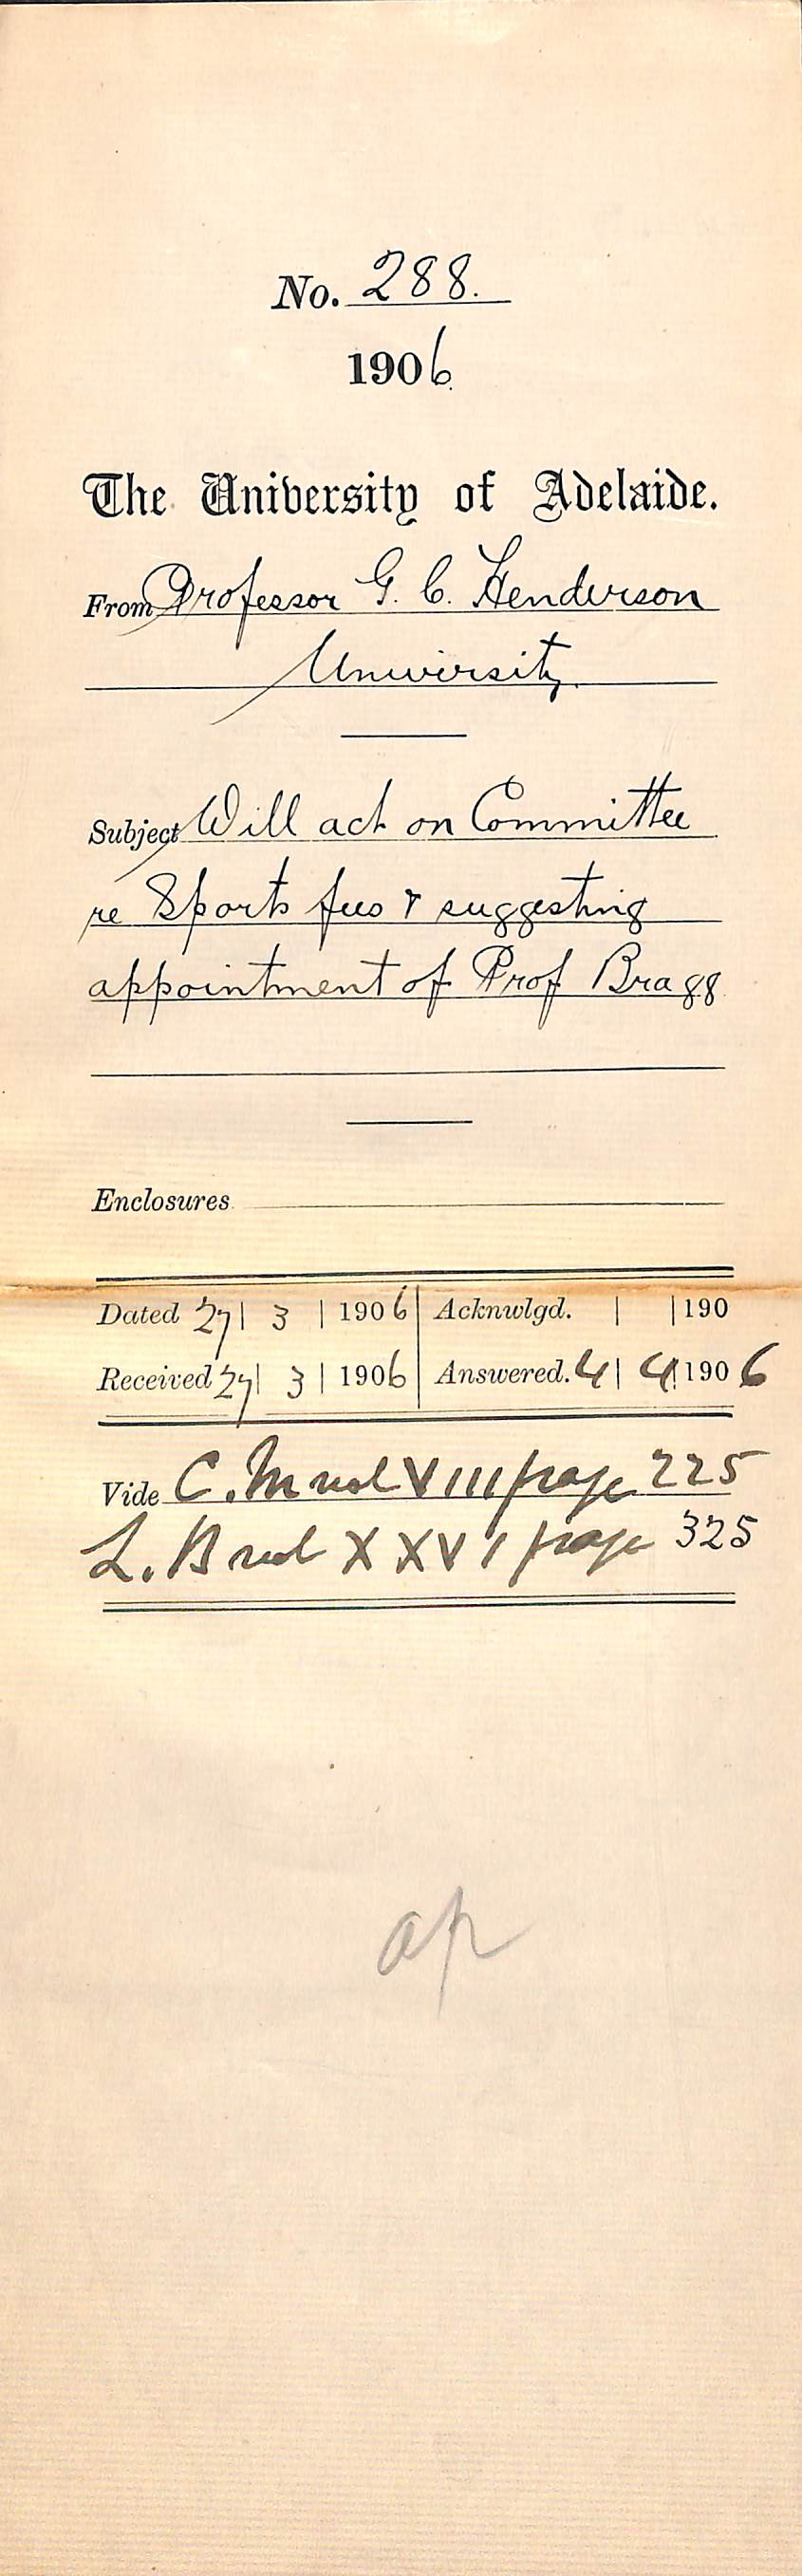 No. 288.
1906
The University of Adelaide.
From Professor G. C. Henderson
University
Subject Will act on Committee
re Sports fees & suggesting
appointment of Prof Bragg
Enclosures
Dated 27 | 3 | 1906 | Acknwlgd. | | 190
Received 27 | 3 | 1906 | Answered. 4 | 4 | 1906
Vide C. M vol VIII page 225
L. B vol XXVI page 325